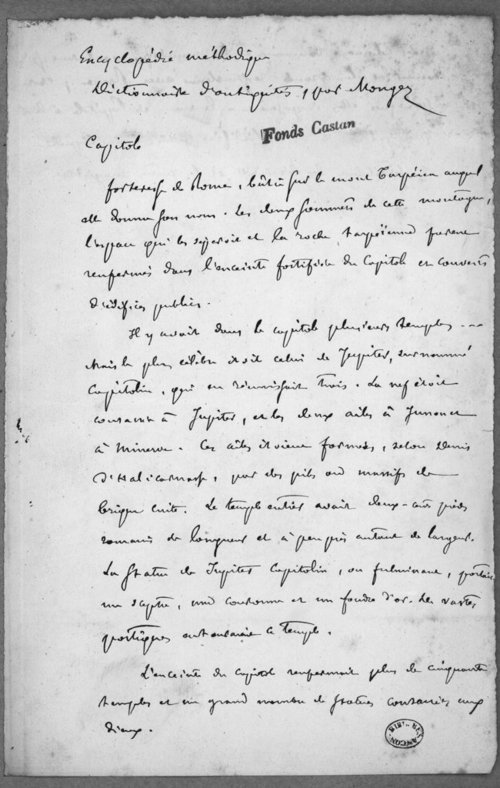 Encyclopédie méthodique
Dictionnaire d'antiquités, par Mongez
Fonds Castan
Capitole
forteresse de Rome, bâtie sur le mont Tarpéien auquel
elle donna son nom. Les deux sommets de cette montagne,
l'espace qui les séparoit et la roche tarpéienne furent
renfermés dans l'enceinte fortifiée du Capitole et couverts
d'édifices publics.
Il y avoit dans le capitole plusieurs temples ...
Mais le plus célèbre étoit celui de Jupiter, surnommé
Capitolin, qui en réunissait trois. La nef étoit
consacrée à Jupiter, et les deux ailes à Junon et
à Minerve. Ces ailes étoient formées, selon Denis
d'Halicarnasse, par des piliers ou massifs de
brique cuite. Le temple entier avait deux-cens pieds
romains de longueur et à peu près autant de largeur.
La statue de Jupiter Capitolin, ou fulminant, portoit
un sceptre, une couronne et un foudre d'or. De vastes
portiques entouraient ce temple.
L'enceinte du capitole renfermait plus de cinquante
temples et un grand nombre de statues consacrées aux
dieux.